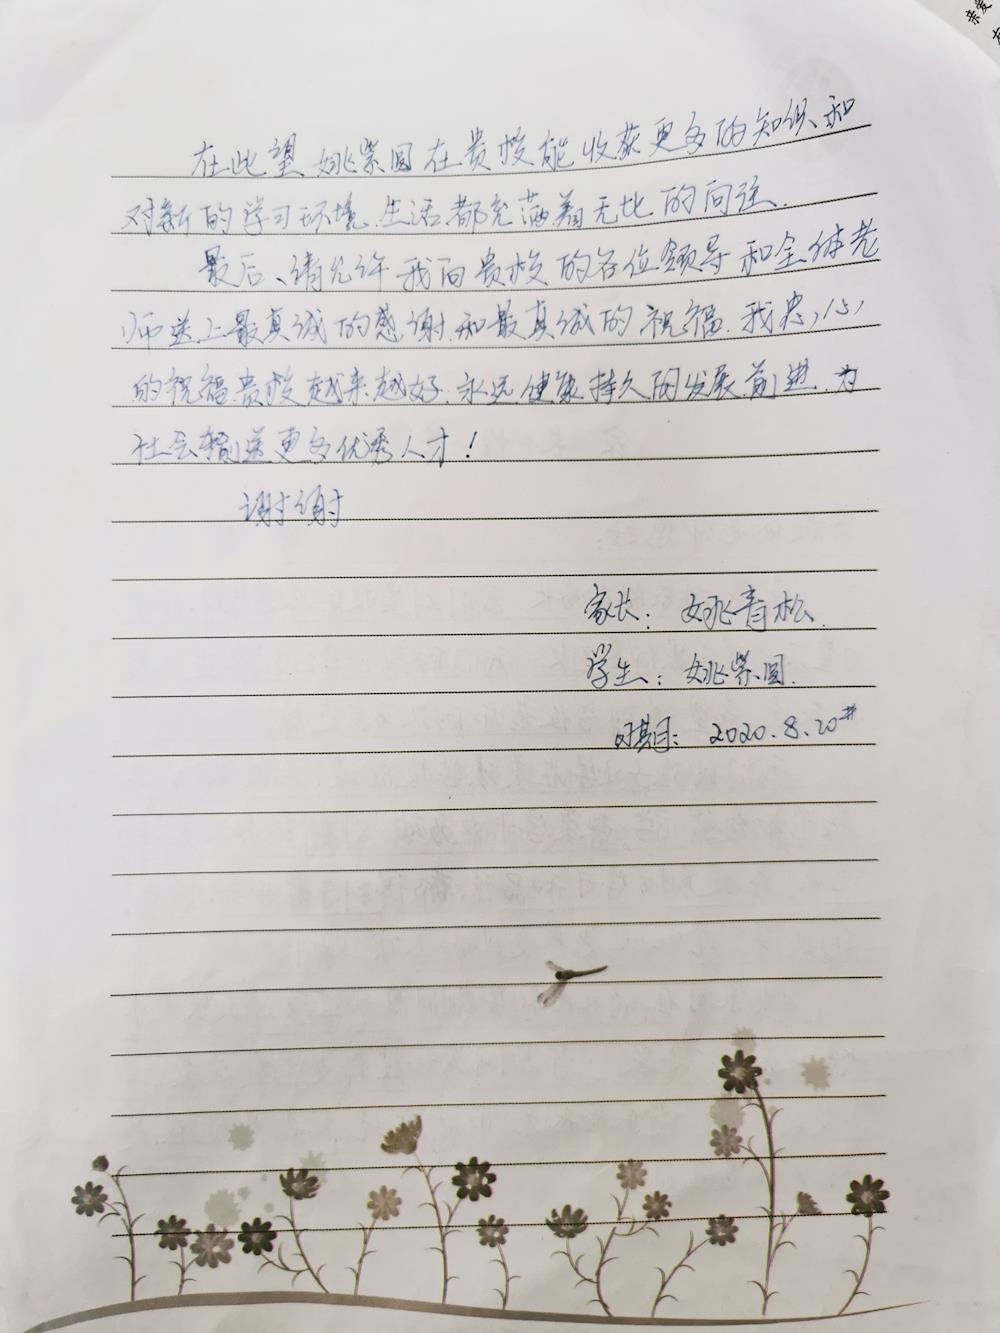 在此望姚紫圆在贵校能收获更多的知识、和
对新的学习环境、生活、都充满着无比的向往.
最后、请允许我向贵校的各位领导和全体老
师送上最真诚的感谢.和最真诚的祝福.我忠心
的祝福贵校越来越好.永远健康持久的发展前进.为
社会输送更多优秀人才!
谢谢
家长: 姚青松.
学生: 姚紫圆.
日期: 2020.8.20#
亲爱